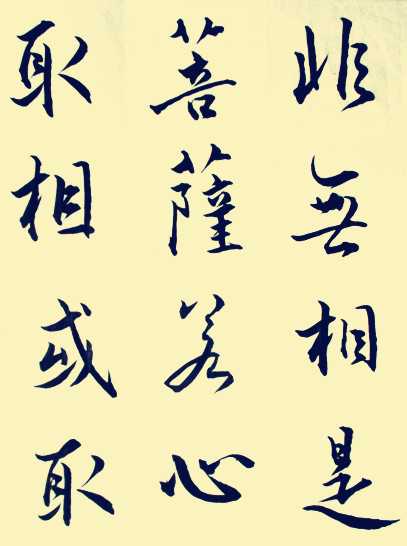 非無相是
菩薩若心
取相或取